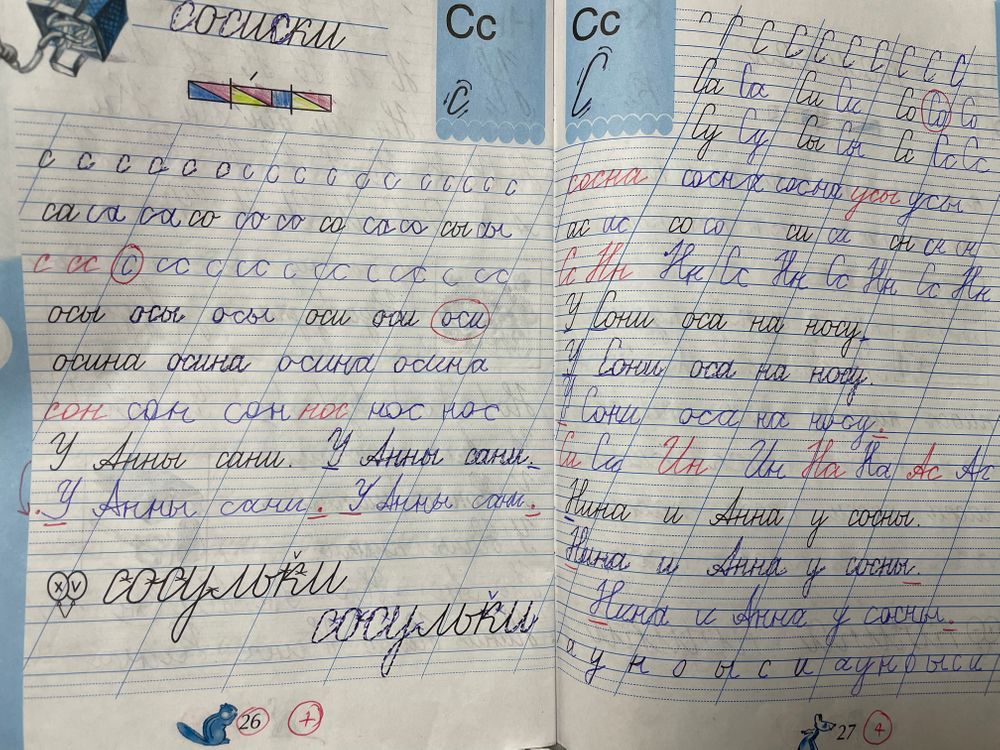 сосиски
Сс
с
с с с с с с с с с с с с с с с с с
са са са со со со со са со сы сы
с сс с сс с сс с сс с сс с сс
осы осы осы оси оси оси
осина осина осина осина
сон сон сон нос нос нос
У Анны сани. У Анны сани.
У Анны сани. У Анны сани.
х v сосульки
сосульки
26 4
Сс
С
С С С С С С С С
Са Са Си Си Со Со Со
Су Су Сы Сы Сс Сс Сс
сосна сосна сосна усы усы
ас ас со со си си сн сн сн
Сс Нн Нн Сс Нн Сс Нн Сс Нн
У Сони оса на носу.
У Сони оса на носу.
У Сони оса на носу.
Си Си Ин Ин На На Ас Ас
Нина и Анна у сосны.
Нина и Анна у сосны.
Нина и Анна у сосны.
а у н о ы с и а у н о ы с и
27 4